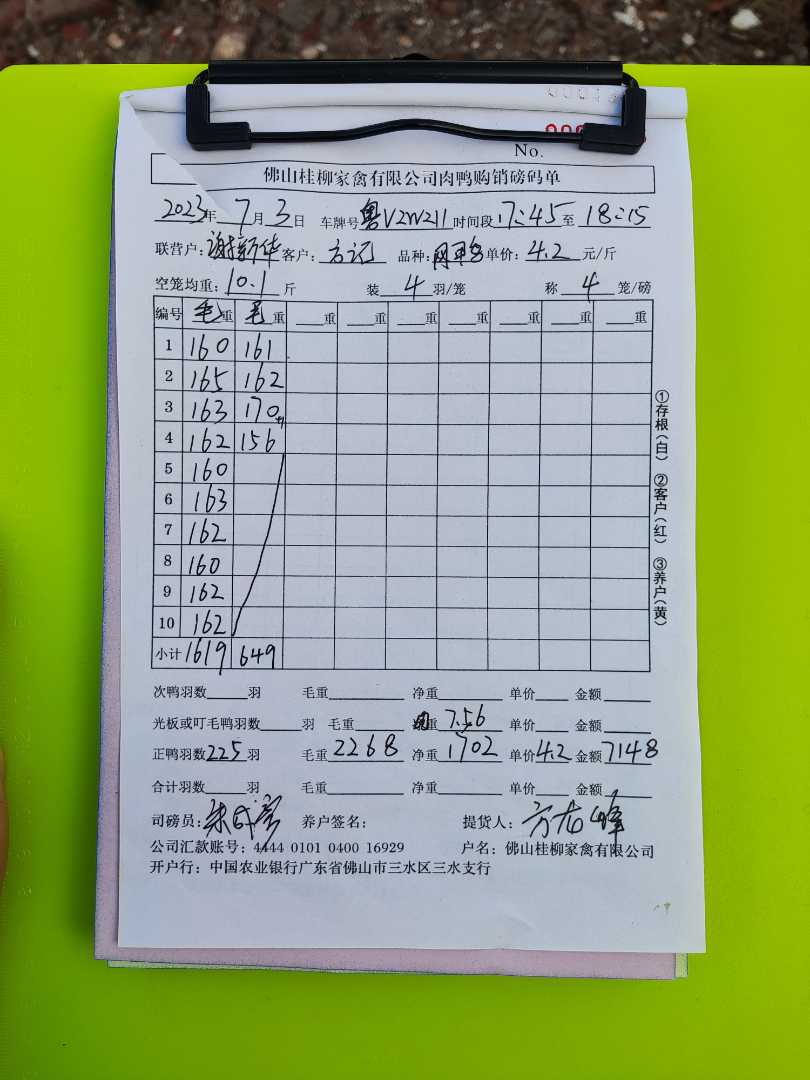 No.
佛山桂柳家禽有限公司肉鸭购销磅码单
2023年 7月 3日 车牌号 粤V2W211 时间段 17:45 至 18:15
联营户: 谢新华 客户: 方记 品种: 单价: 4.2 元/斤
空笼均重: 10.1 斤 装 4 羽/笼 称 4 笼/磅
编号 毛重 毛重 ___重 ___重 ___重 ___重 ___重 ___重 ___重
1 160 161
2 165 162
3 163 170
4 162 156
5 160
6 163
7 162
8 160
9 162
10 162
小计 1619 649
①存根(白) ②客户(红) ③养户(黄)
次鸭羽数___羽 毛重___ 净重___ 单价___ 金额___
光板或叮毛鸭羽数___羽 毛重___ 重 7.56 单价___ 金额___
正鸭羽数 225 羽 毛重 2268 净重 1702 单价 4.2 金额 7148
合计羽数___羽 毛重___ 净重___ 单价___ 金额___
司磅员: 养户签名: 提货人:
公司汇款账号: 4444 0101 0400 16929 户名: 佛山桂柳家禽有限公司
开户行: 中国农业银行广东省佛山市三水区三水支行